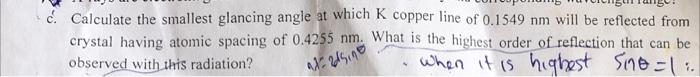 c. Calculate the smallest glancing angle at which K copper line of 0.1549 nm will be reflected from
crystal having atomic spacing of 0.4255 nm. What is the highest order of reflection that can be
observed with this radiation? nλ = 2dsinθ . when it is highest sinθ = 1 ∴